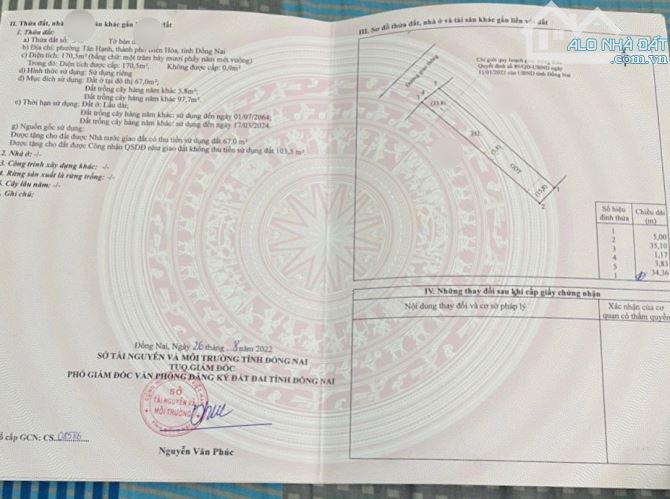 II. Thửa đất, nhà ở và tài sản khác gắn liền với đất
1. Thửa đất:
a) Thửa đất số: Tờ bản
b) Địa chỉ: phường Tân Hạnh, thành phố Biên Hòa, tỉnh Đồng Nai
c) Diện tích: 170,5m² (bằng chữ: một trăm bảy mươi phẩy năm mét vuông)
Trong đó: Diện tích được cấp: 170,5m². Không được cấp: 0,0m²
d) Hình thức sử dụng: Sử dụng riêng
đ) Mục đích sử dụng: Đất ở tại đô thị 67,0m²;
Đất trồng cây hàng năm khác 5,8m²;
Đất trồng cây hàng năm khác 97,7m².
e) Thời hạn sử dụng: Đất ở: Lâu dài;
Đất trồng cây hàng năm khác: sử dụng đến ngày 01/07/2064;
Đất trồng cây hàng năm khác: sử dụng đến ngày 17/03/2024.
g) Nguồn gốc sử dụng:
Được tặng cho đất được Nhà nước giao đất có thu tiền sử dụng đất 67,0 m²
Được tặng cho đất được Công nhận QSDĐ như giao đất không thu tiền sử dụng đất 103,5 m².
2. Nhà ở: -/-
3. Công trình xây dựng khác: -/-
4. Rừng sản xuất là rừng trồng: -/-
5. Cây lâu năm: -/-
Ghi chú:
Đồng Nai, Ngày 26 tháng 8 năm 2022
SỞ TÀI NGUYÊN VÀ MÔI TRƯỜNG TỈNH ĐỒNG NAI
TUQ.GIÁM ĐỐC
PHÓ GIÁM ĐỐC VĂN PHÒNG ĐĂNG KÝ ĐẤT ĐAI TỈNH ĐỒNG NAI
SỞ
TÀI NGUYÊN VÀ
MÔI TRƯỜNG
Nguyễn Văn Phúc
cấp GCN: CS.
III. Sơ đồ thửa đất, nhà ở và tài sản khác gắn liền với đất
ALO NHÀ ĐẤT
.COM.VN
Đường giao thông
Số hiệu đỉnh thửa
Chiều dài (m)
1
2
3
4
5
1
5,00
35,10
1,17
3,83
34,36
IV. Những thay đổi sau khi cấp giấy chứng nhận
Nội dung thay đổi và cơ sở pháp lý
Xác nhận của cơ
quan có thẩm quyền